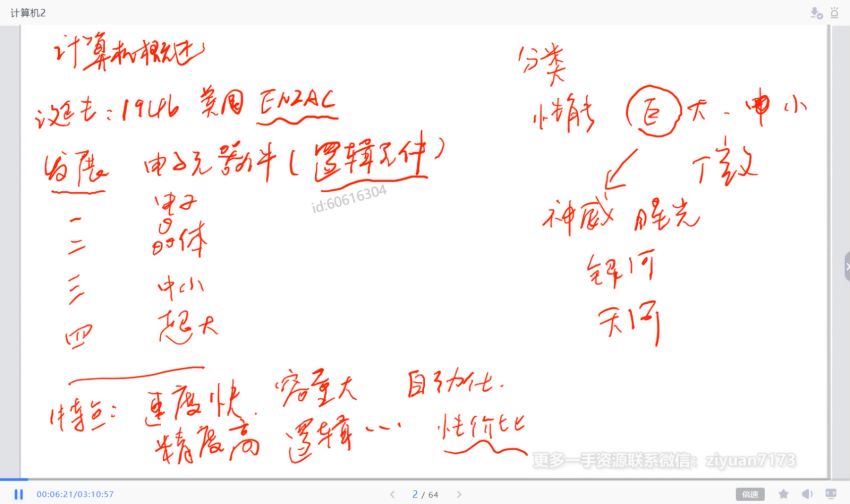 计算机2
计算机概述
诞生：1946 美国 ENIAC
发展 电子元器件（逻辑元件）
一 电子
二 晶体
三 中小
四 超大
特点：速度快 容量大 自动化
精度高 逻辑… 性价比
分类
性能 巨 大 中 小
微
神威 曙光
银河
天河
id:60616304
更多一手资源联系微信：ziyuan7173
00:06:21/03:10:57
2 / 64
倍速